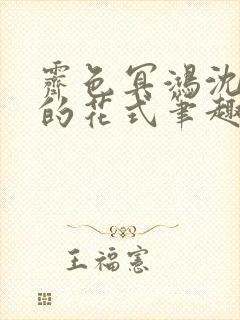 霽色冥鴻沈
的花式筆趣
王福憲